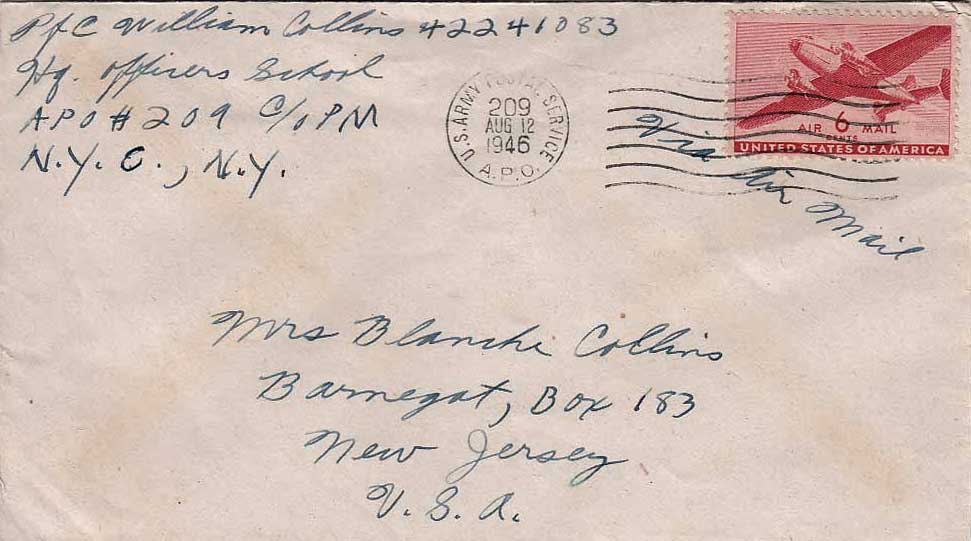 Pfc William Collins 42241083
Hq. Officers School
APO # 209 C/o PM
N.Y.C., N.Y.
U.S. ARMY POSTAL SERVICE
209
AUG 12
1946
A.P.O.
AIR 6 MAIL
CENTS
UNITED STATES OF AMERICA
Via Air Mail
Mrs Blanche Collins
Barnegat, Box 183
New Jersey
U.S.A.